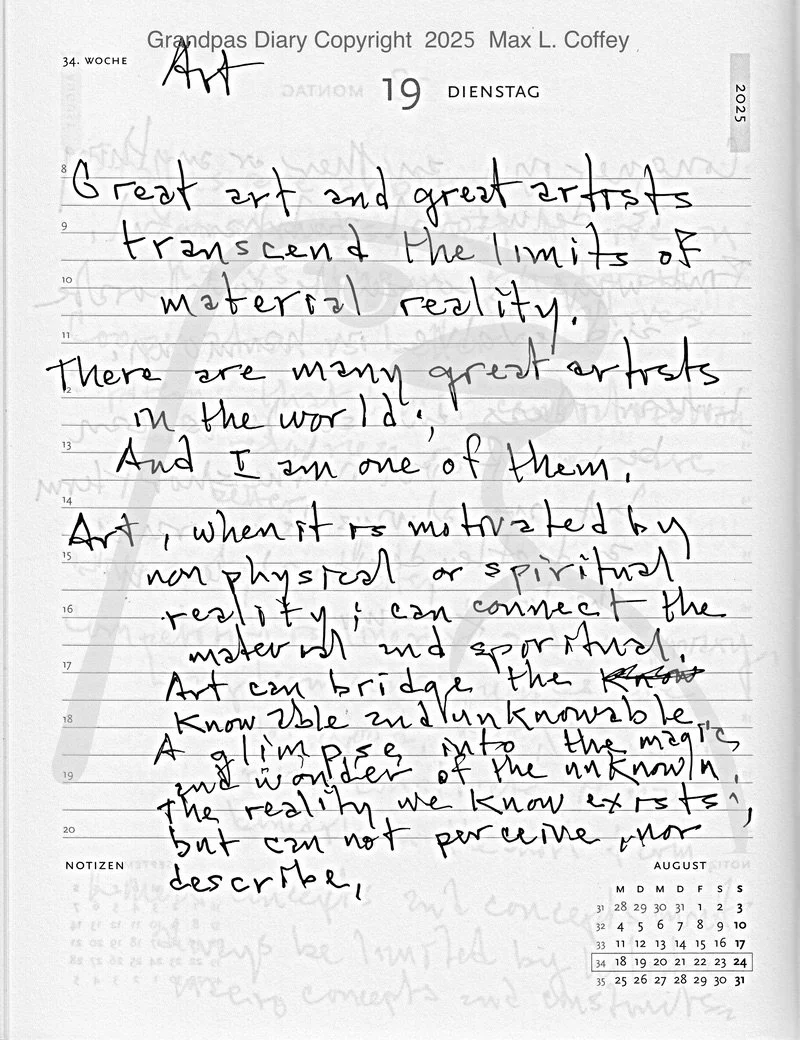 Grandpas Diary Copyright 2025 Max L. Coffey
34. WOCHE
Art
19 DIENSTAG
2025
8
Great art and great artists
9
transcend the limits of
10
material reality.
11
There are many great artists
12
in the world;
13
And I am one of them.
14
Art, when it is motivated by
15
non physical or spiritual
16
reality; can connect the
material and spiritual.
17
Art can bridge the know
18
knowable and unknowable
A glimpse into the magic
and wonder of the unknown.
19
The reality we know exists,
20
but can not perceive, nor
describe.
NOTIZEN
AUGUST
M D M D F S S
31 28 29 30 31 1 2 3
32 4 5 6 7 8 9 10
33 11 12 13 14 15 16 17
34 18 19 20 21 22 23 24
35 25 26 27 28 29 30 31